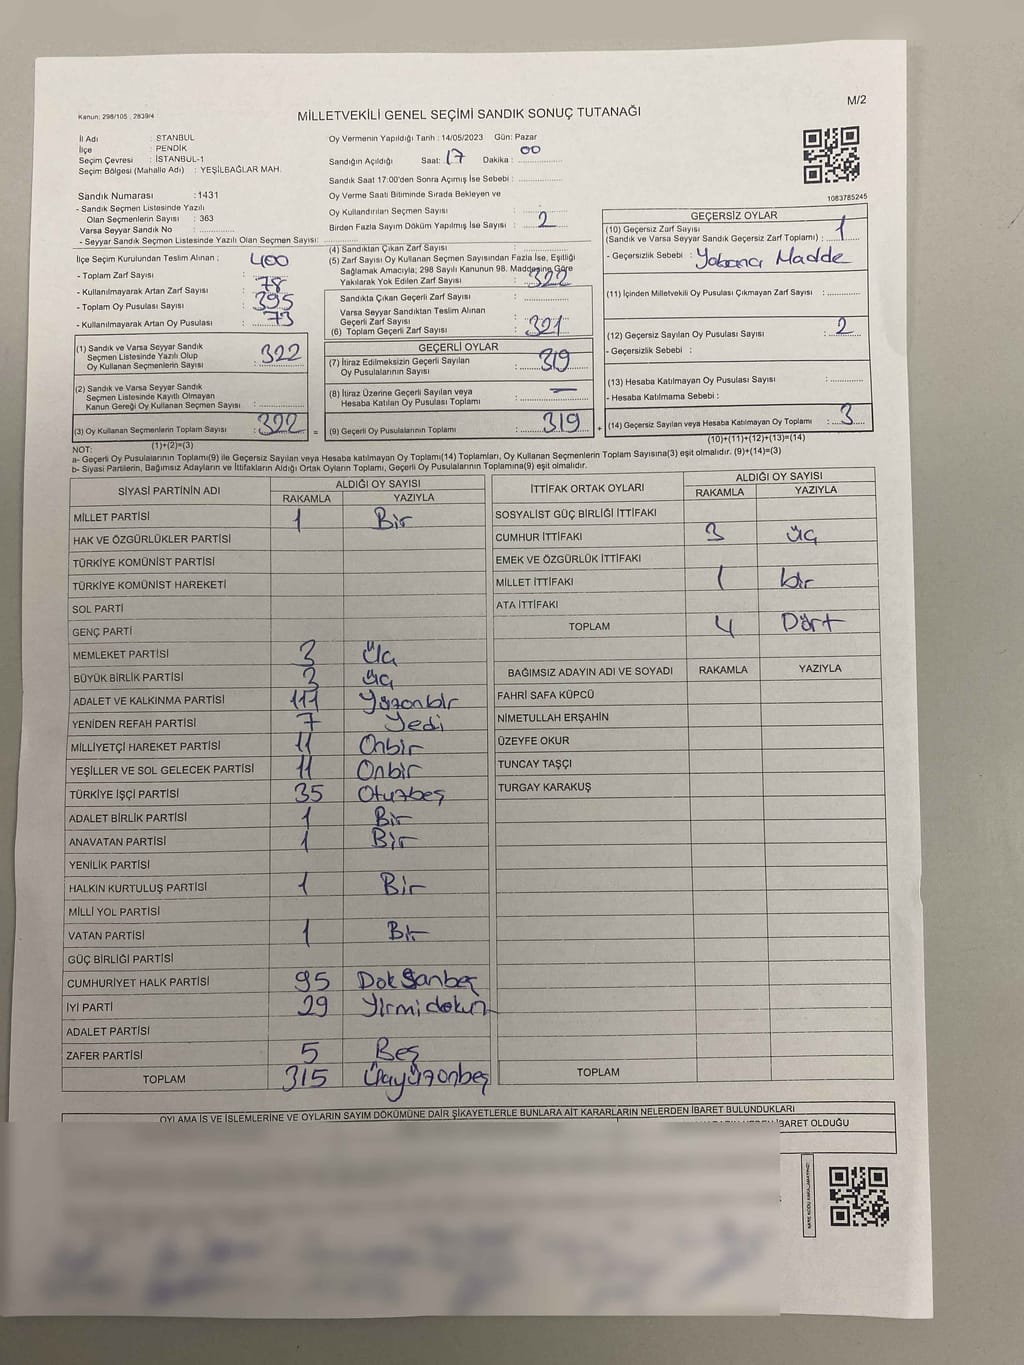 M/2
Kanun: 298/105 , 2839/4
MİLLETVEKİLİ GENEL SEÇİMİ SANDIK SONUÇ TUTANAĞI
İl Adı : STANBUL
İlçe : PENDİK
Seçim Çevresi : İSTANBUL-1
Seçim Bölgesi (Mahalle Adı) : YEŞİLBAĞLAR MAH.
Sandık Numarası : 1431
- Sandık Seçmen Listesinde Yazılı
Olan Seçmenlerin Sayısı : 363
Varsa Seyyar Sandık No :
- Seyyar Sandık Seçmen Listesinde Yazılı Olan Seçmen Sayısı:
İlçe Seçim Kurulundan Teslim Alınan ; 400
- Toplam Zarf Sayısı :
- Kullanılmayarak Artan Zarf Sayısı : 78
- Toplam Oy Pusulası Sayısı : 395
- Kullanılmayarak Artan Oy Pusulası : 73
(1) Sandık ve Varsa Seyyar Sandık
Seçmen Listesinde Yazılı Olup
Oy Kullanan Seçmenlerin Sayısı : 322
(2) Sandık ve Varsa Seyyar Sandık
Seçmen Listesinde Kayıtlı Olmayan
Kanun Gereği Oy Kullanan Seçmen Sayısı :
(3) Oy Kullanan Seçmenlerin Toplam Sayısı : 322
(1)+(2)=(3)
Oy Vermenin Yapıldığı Tarih : 14/05/2023 Gün: Pazar
Sandığın Açıldığı Saat: 17 Dakika : 00
Sandık Saat 17:00'den Sonra Açılmış İse Sebebi :
Oy Verme Saati Bitiminde Sırada Bekleyen ve
Oy Kullandırılan Seçmen Sayısı :
Birden Fazla Sayım Döküm Yapılmış İse Sayısı : 2
(4) Sandıktan Çıkan Zarf Sayısı :
(5) Zarf Sayısı Oy Kullanan Seçmen Sayısından Fazla İse, Eşitliği
Sağlamak Amacıyla; 298 Sayılı Kanunun 98. Maddesine Göre
Yakılarak Yok Edilen Zarf Sayısı : 322
Sandıkta Çıkan Geçerli Zarf Sayısı :
Varsa Seyyar Sandıktan Teslim Alınan
Geçerli Zarf Sayısı :
(6) Toplam Geçerli Zarf Sayısı : 321
GEÇERLİ OYLAR
(7) İtiraz Edilmeksizin Geçerli Sayılan
Oy Pusulalarının Sayısı : 319
(8) İtiraz Üzerine Geçerli Sayılan veya
Hesaba Katılan Oy Pusulası Toplamı : —
= (9) Geçerli Oy Pusulalarının Toplamı : 319 +
1083785245
GEÇERSİZ OYLAR
(10) Geçersiz Zarf Sayısı
(Sandık ve Varsa Seyyar Sandık Geçersiz Zarf Toplamı) : 1
- Geçersizlik Sebebi : Yabancı Madde
(11) İçinden Milletvekili Oy Pusulası Çıkmayan Zarf Sayısı :
(12) Geçersiz Sayılan Oy Pusulası Sayısı : 2
- Geçersizlik Sebebi :
(13) Hesaba Katılmayan Oy Pusulası Sayısı :
- Hesaba Katılmama Sebebi :
(14) Geçersiz Sayılan veya Hesaba Katılmayan Oy Toplamı : 3
(10)+(11)+(12)+(13)=(14)
NOT:
a- Geçerli Oy Pusulalarının Toplamı(9) ile Geçersiz Sayılan veya Hesaba katılmayan Oy Toplamı(14) Toplamları, Oy Kullanan Seçmenlerin Toplam Sayısına(3) eşit olmalıdır. (9)+(14)=(3)
b- Siyasi Partilerin, Bağımsız Adayların ve İttifakların Aldığı Ortak Oyların Toplamı, Geçerli Oy Pusulalarının Toplamına(9) eşit olmalıdır.
SİYASİ PARTİNİN ADI ALDIĞI OY SAYISI
RAKAMLA YAZIYLA
MİLLET PARTİSİ 1 Bir
HAK VE ÖZGÜRLÜKLER PARTİSİ
TÜRKİYE KOMÜNİST PARTİSİ
TÜRKİYE KOMÜNİST HAREKETİ
SOL PARTİ
GENÇ PARTİ
MEMLEKET PARTİSİ 3 Üç
BÜYÜK BİRLİK PARTİSİ 3 üç
ADALET VE KALKINMA PARTİSİ 111 Yüzonbir
YENİDEN REFAH PARTİSİ 7 Yedi
MİLLİYETÇİ HAREKET PARTİSİ 11 Onbir
YEŞİLLER VE SOL GELECEK PARTİSİ 11 Onbir
TÜRKİYE İŞÇİ PARTİSİ 35 Otuzbeş
ADALET BİRLİK PARTİSİ 1 Bir
ANAVATAN PARTİSİ 1 Bir
YENİLİK PARTİSİ
HALKIN KURTULUŞ PARTİSİ 1 Bir
MİLLİ YOL PARTİSİ
VATAN PARTİSİ 1 Bir
GÜÇ BİRLİĞİ PARTİSİ
CUMHURİYET HALK PARTİSİ 95 Doksanbeş
İYİ PARTİ 29 Yirmidokuz
ADALET PARTİSİ
ZAFER PARTİSİ 5 Beş
TOPLAM 315 Üçyüzonbeş
İTTİFAK ORTAK OYLARI ALDIĞI OY SAYISI
RAKAMLA YAZIYLA
SOSYALİST GÜÇ BİRLİĞİ İTTİFAKI
CUMHUR İTTİFAKI 3 üç
EMEK VE ÖZGÜRLÜK İTTİFAKI
MİLLET İTTİFAKI 1 bir
ATA İTTİFAKI
TOPLAM 4 Dört
BAĞIMSIZ ADAYIN ADI VE SOYADI RAKAMLA YAZIYLA
FAHRİ SAFA KÜPCÜ
NİMETULLAH ERŞAHİN
ÜZEYFE OKUR
TUNCAY TAŞÇI
TURGAY KARAKUŞ
TOPLAM
OYLAMA İŞ VE İŞLEMLERİNE VE OYLARIN SAYIM DÖKÜMÜNE DAİR ŞİKAYETLERLE BUNLARA AİT KARARLARIN NELERDEN İBARET BULUNDUKLARI
İBARET OLDUĞU